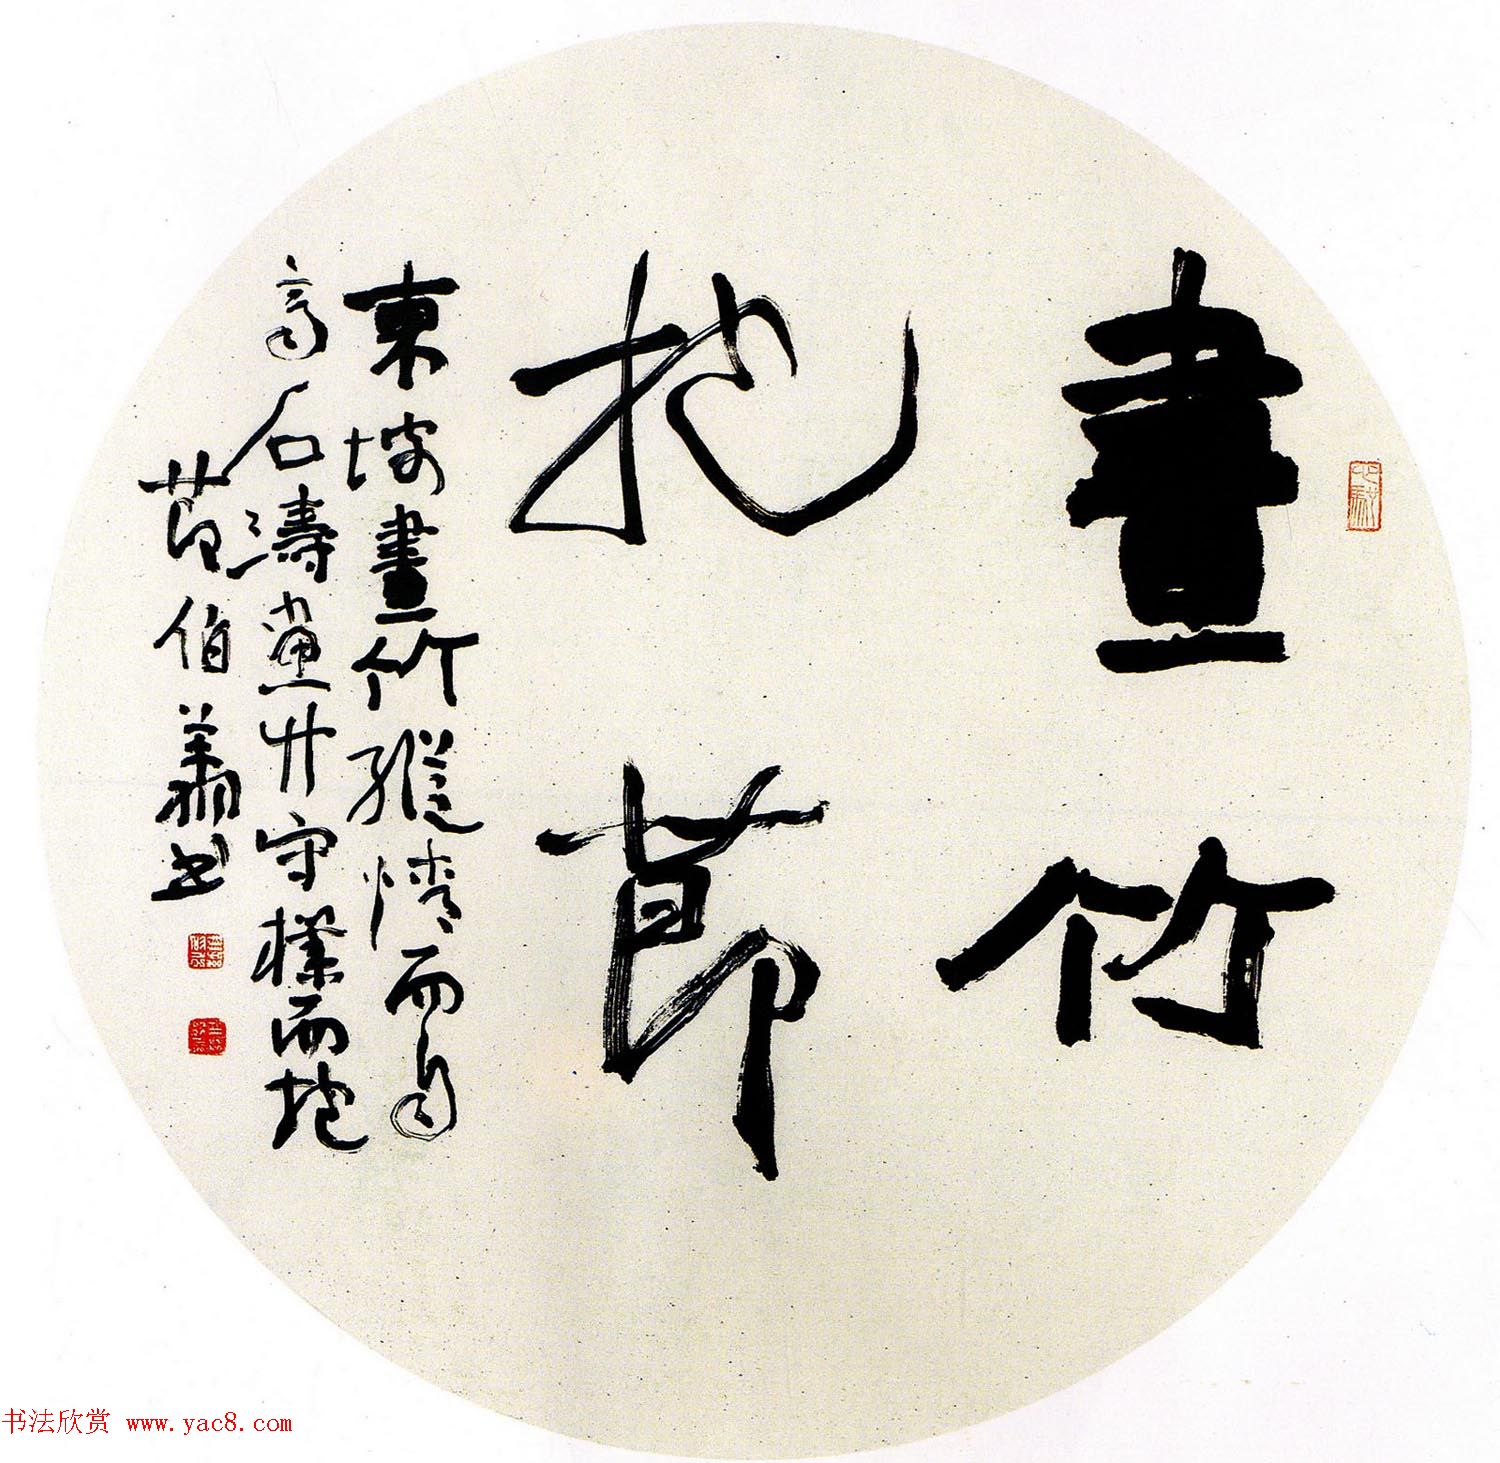 畫竹
抱節
東坡畫竹縱情而自
高石濤畫竹守樸而抱
節伯书
书法欣赏 www.yac8.com